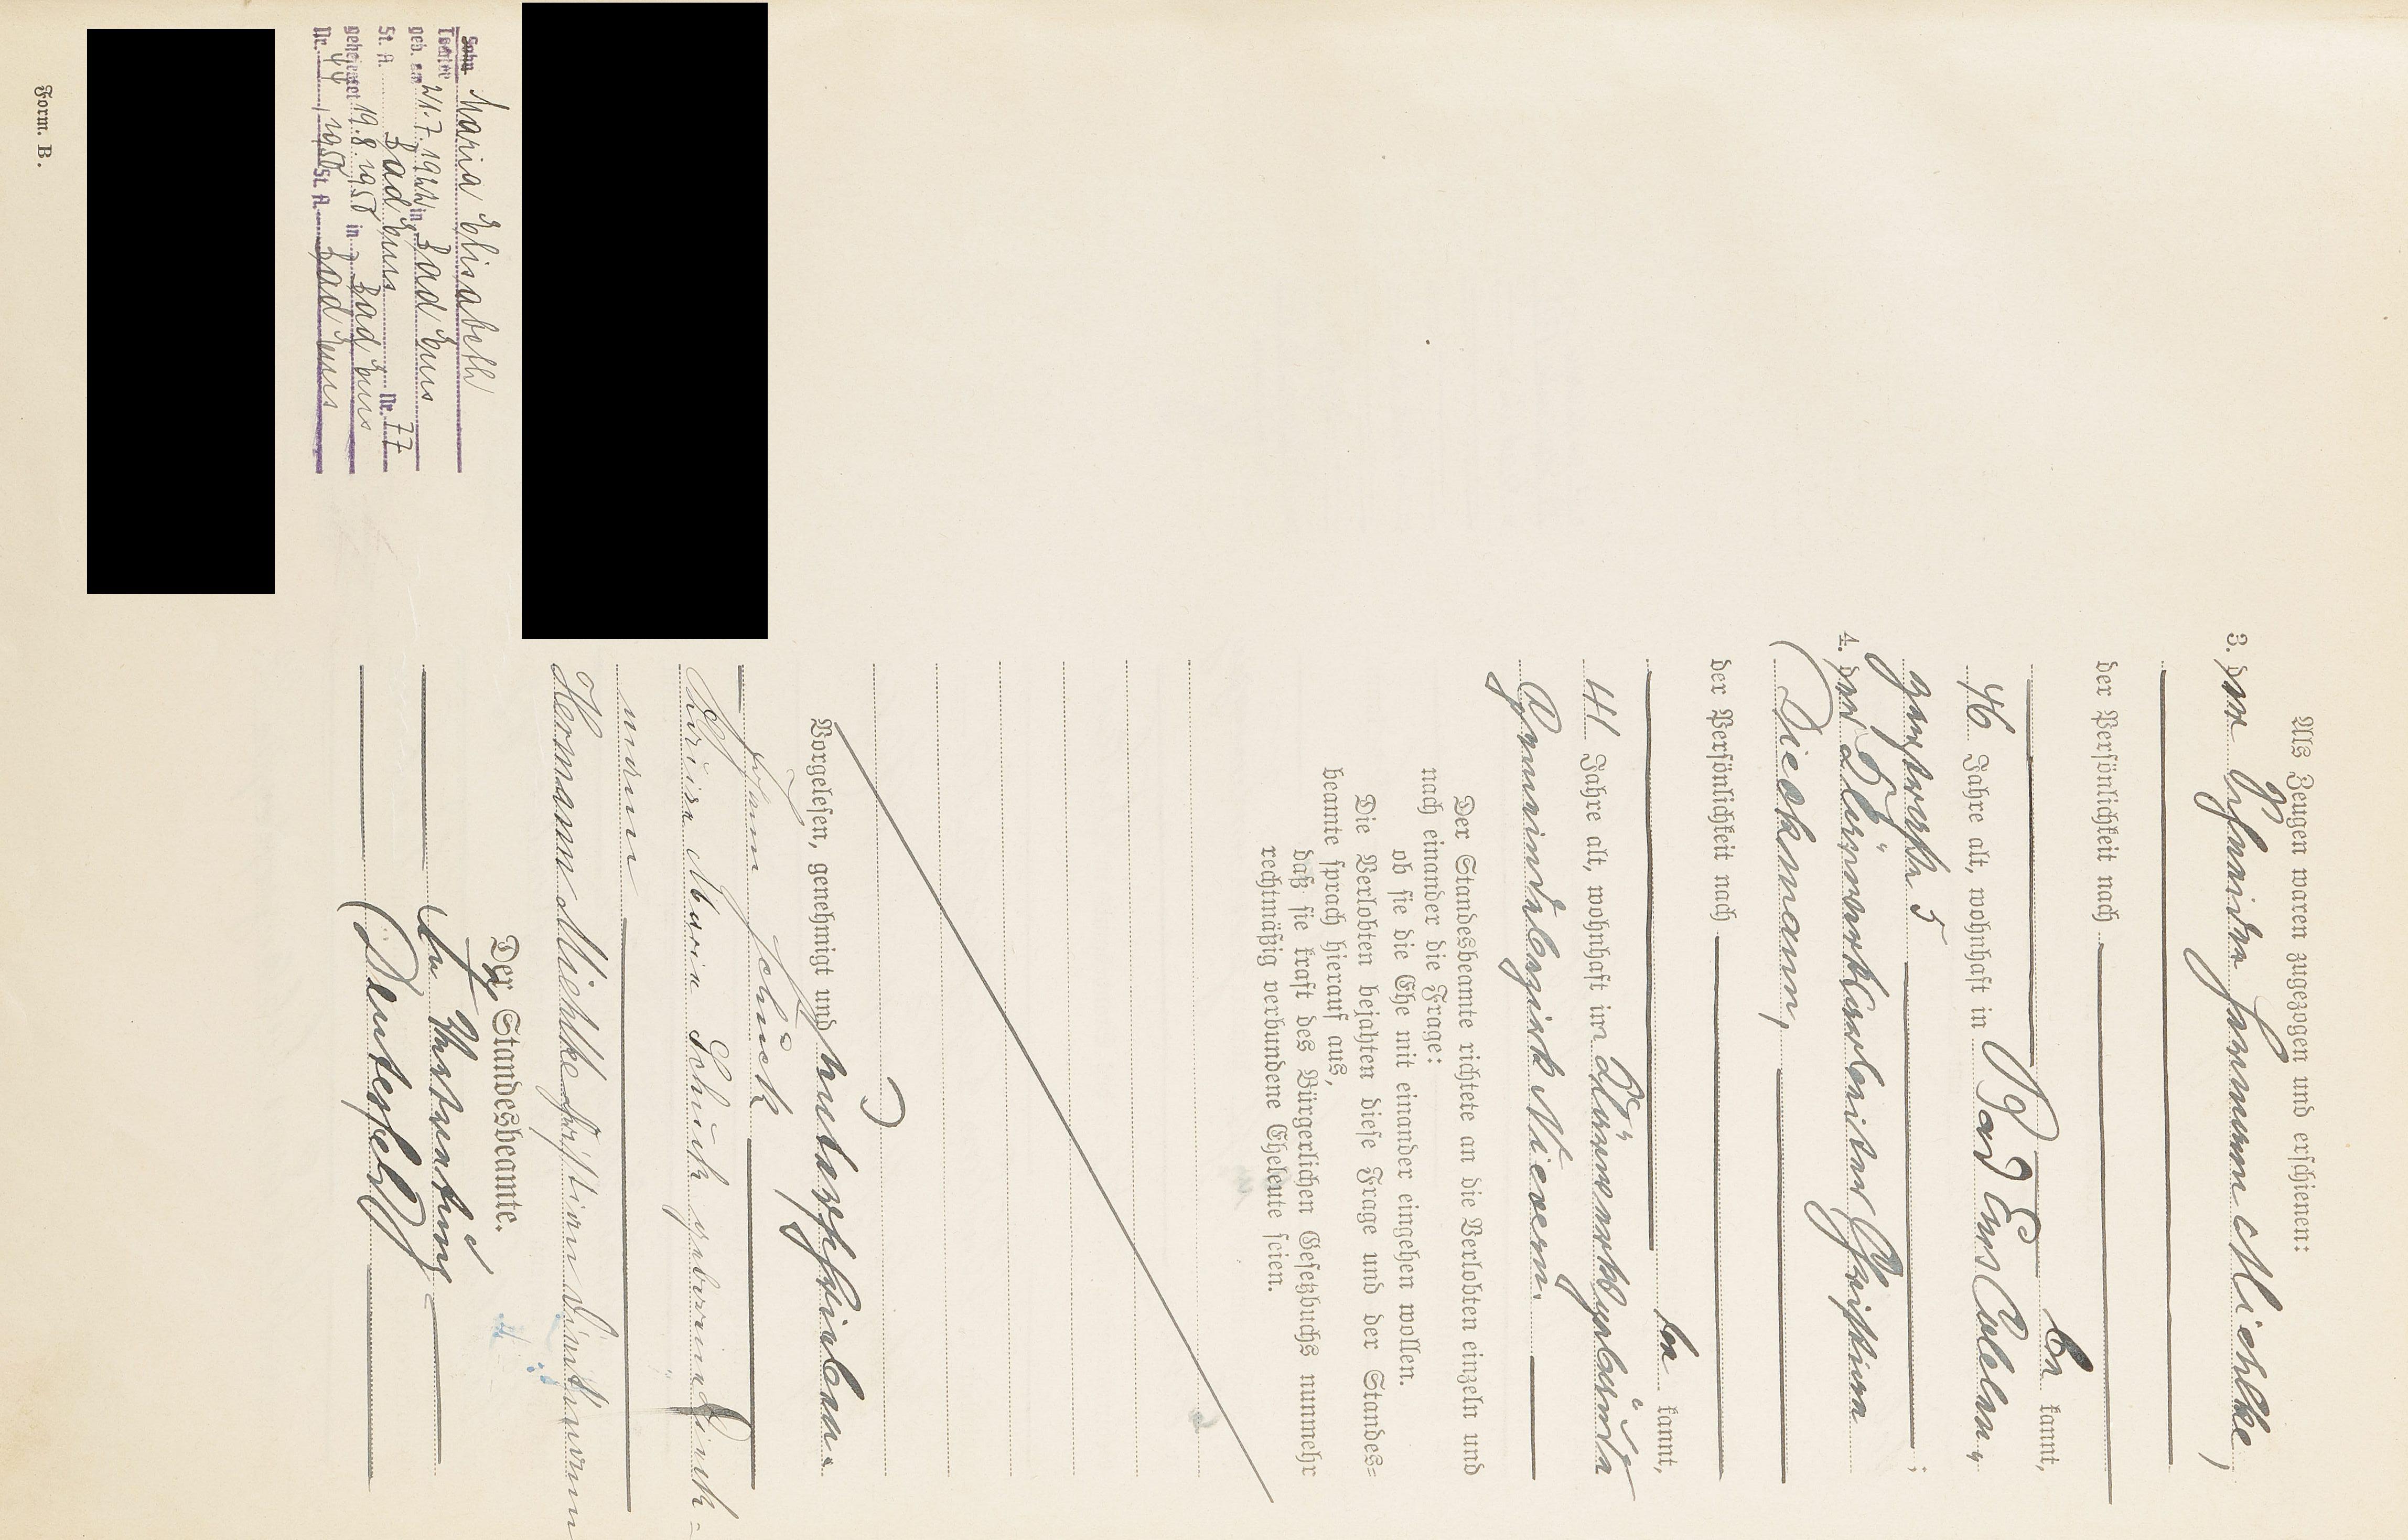 Als Zeugen waren zugezogen und erschienen:
3. der Schneider Hermann Michlke,
der Persönlichkeit nach
be kannt,
46 Jahre alt, wohnhaft in Bad Ems Coblen¬
zerstraße 5 ;
4. der Blaüwerkarbeiter Christian
Dieckmann,
der Persönlichkeit nach
be kannt,
41 Jahre alt, wohnhaft im Blaüwerkgebaüde
Gemeindebezirk Nievern.
Der Standesbeamte richtete an die Verlobten einzeln und
nach einander die Frage:
ob sie die Ehe mit einander eingehen wollen.
Die Verlobten bejahten diese Frage und der Standes=
beamte sprach hierauf aus,
daß sie kraft des Bürgerlichen Gesetzbuchs nunmehr
rechtmäßig verbundene Eheleute seien.
Vorgelesen, genehmigt und unterschrieben.
Johann Schück
Luise Marie Schück geborene Dieck=
mann
Hermann Michlke Christian Dieckmann
Der Standesbeamte.
In Vertretung
Deutesfeld
Sohn Maria Elisabeth
Tochter
geb. am 21.7.1922 in Bad Ems
St. A. Bad Ems Nr. 77
geheiratet 19.8.1950 in Bad Ems
Nr. 44/1950 St. A. Bad Ems
Form. B.